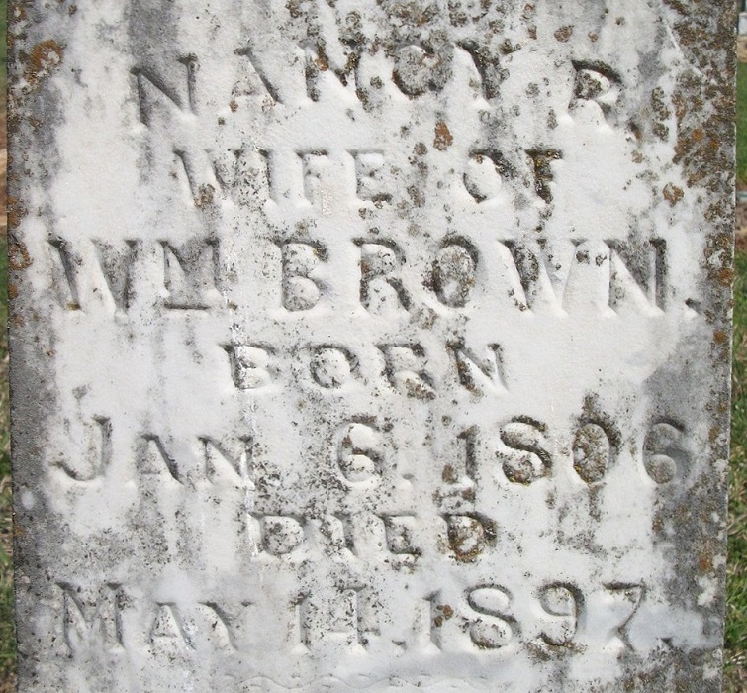 NANCY R.
WIFE OF
WM. BROWN.
BORN
JAN 6. 1806
DIED
MAY 14. 1897.